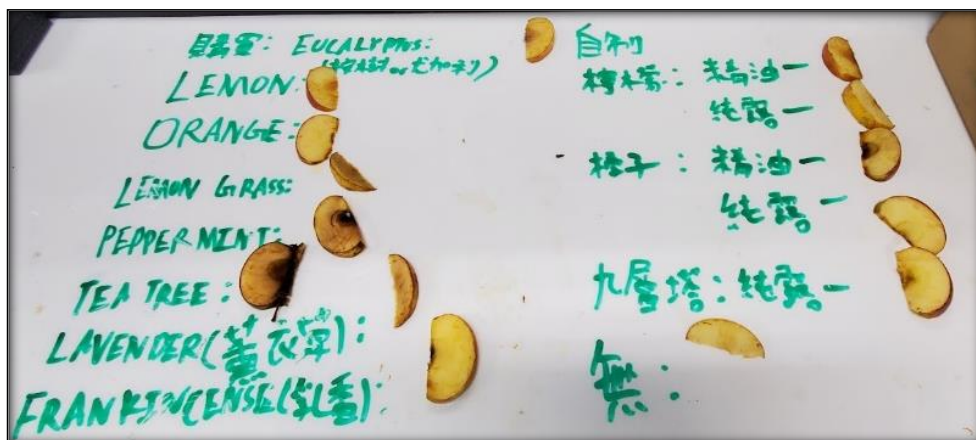 購買: EUCALYPTUS:
(桉樹 or 尤加利)
LEMON:
ORANGE:
LEMON GRASS:
PEPPERMINT:
TEA TREE:
LAVENDER(薰衣草):
FRANKINCENSE(乳香):
自制
檸檬: 精油一
純露一
橙子: 精油一
純露一
九層塔: 純露一
無: